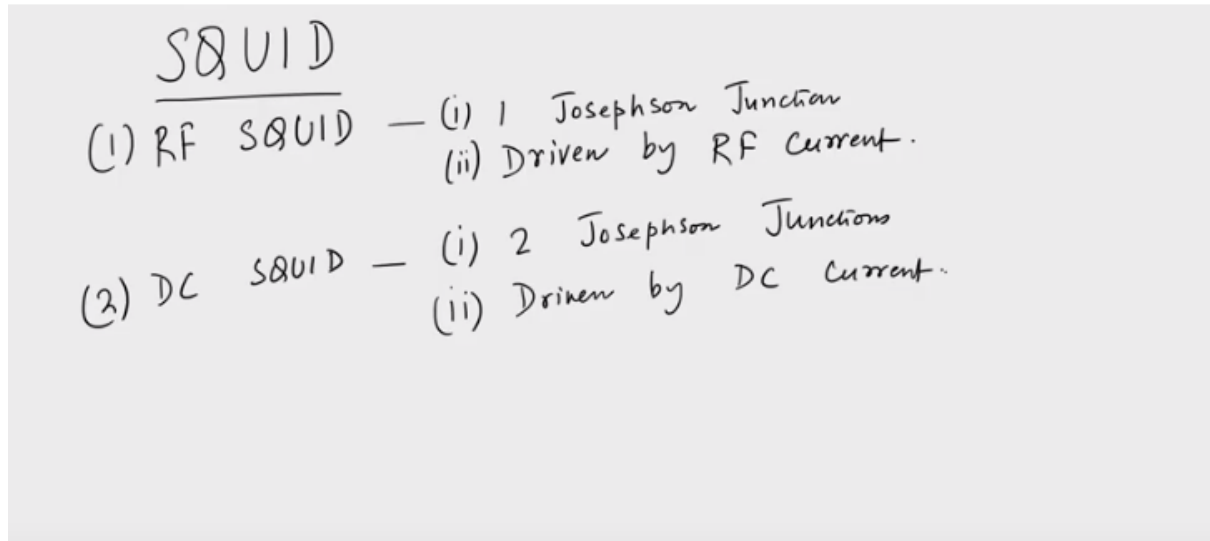 SQUID
(1) RF SQUID – (i) 1 Josephson Junction
(ii) Driven by RF Current.
(2) DC SQUID – (i) 2 Josephson Junctions
(ii) Driven by DC Current.